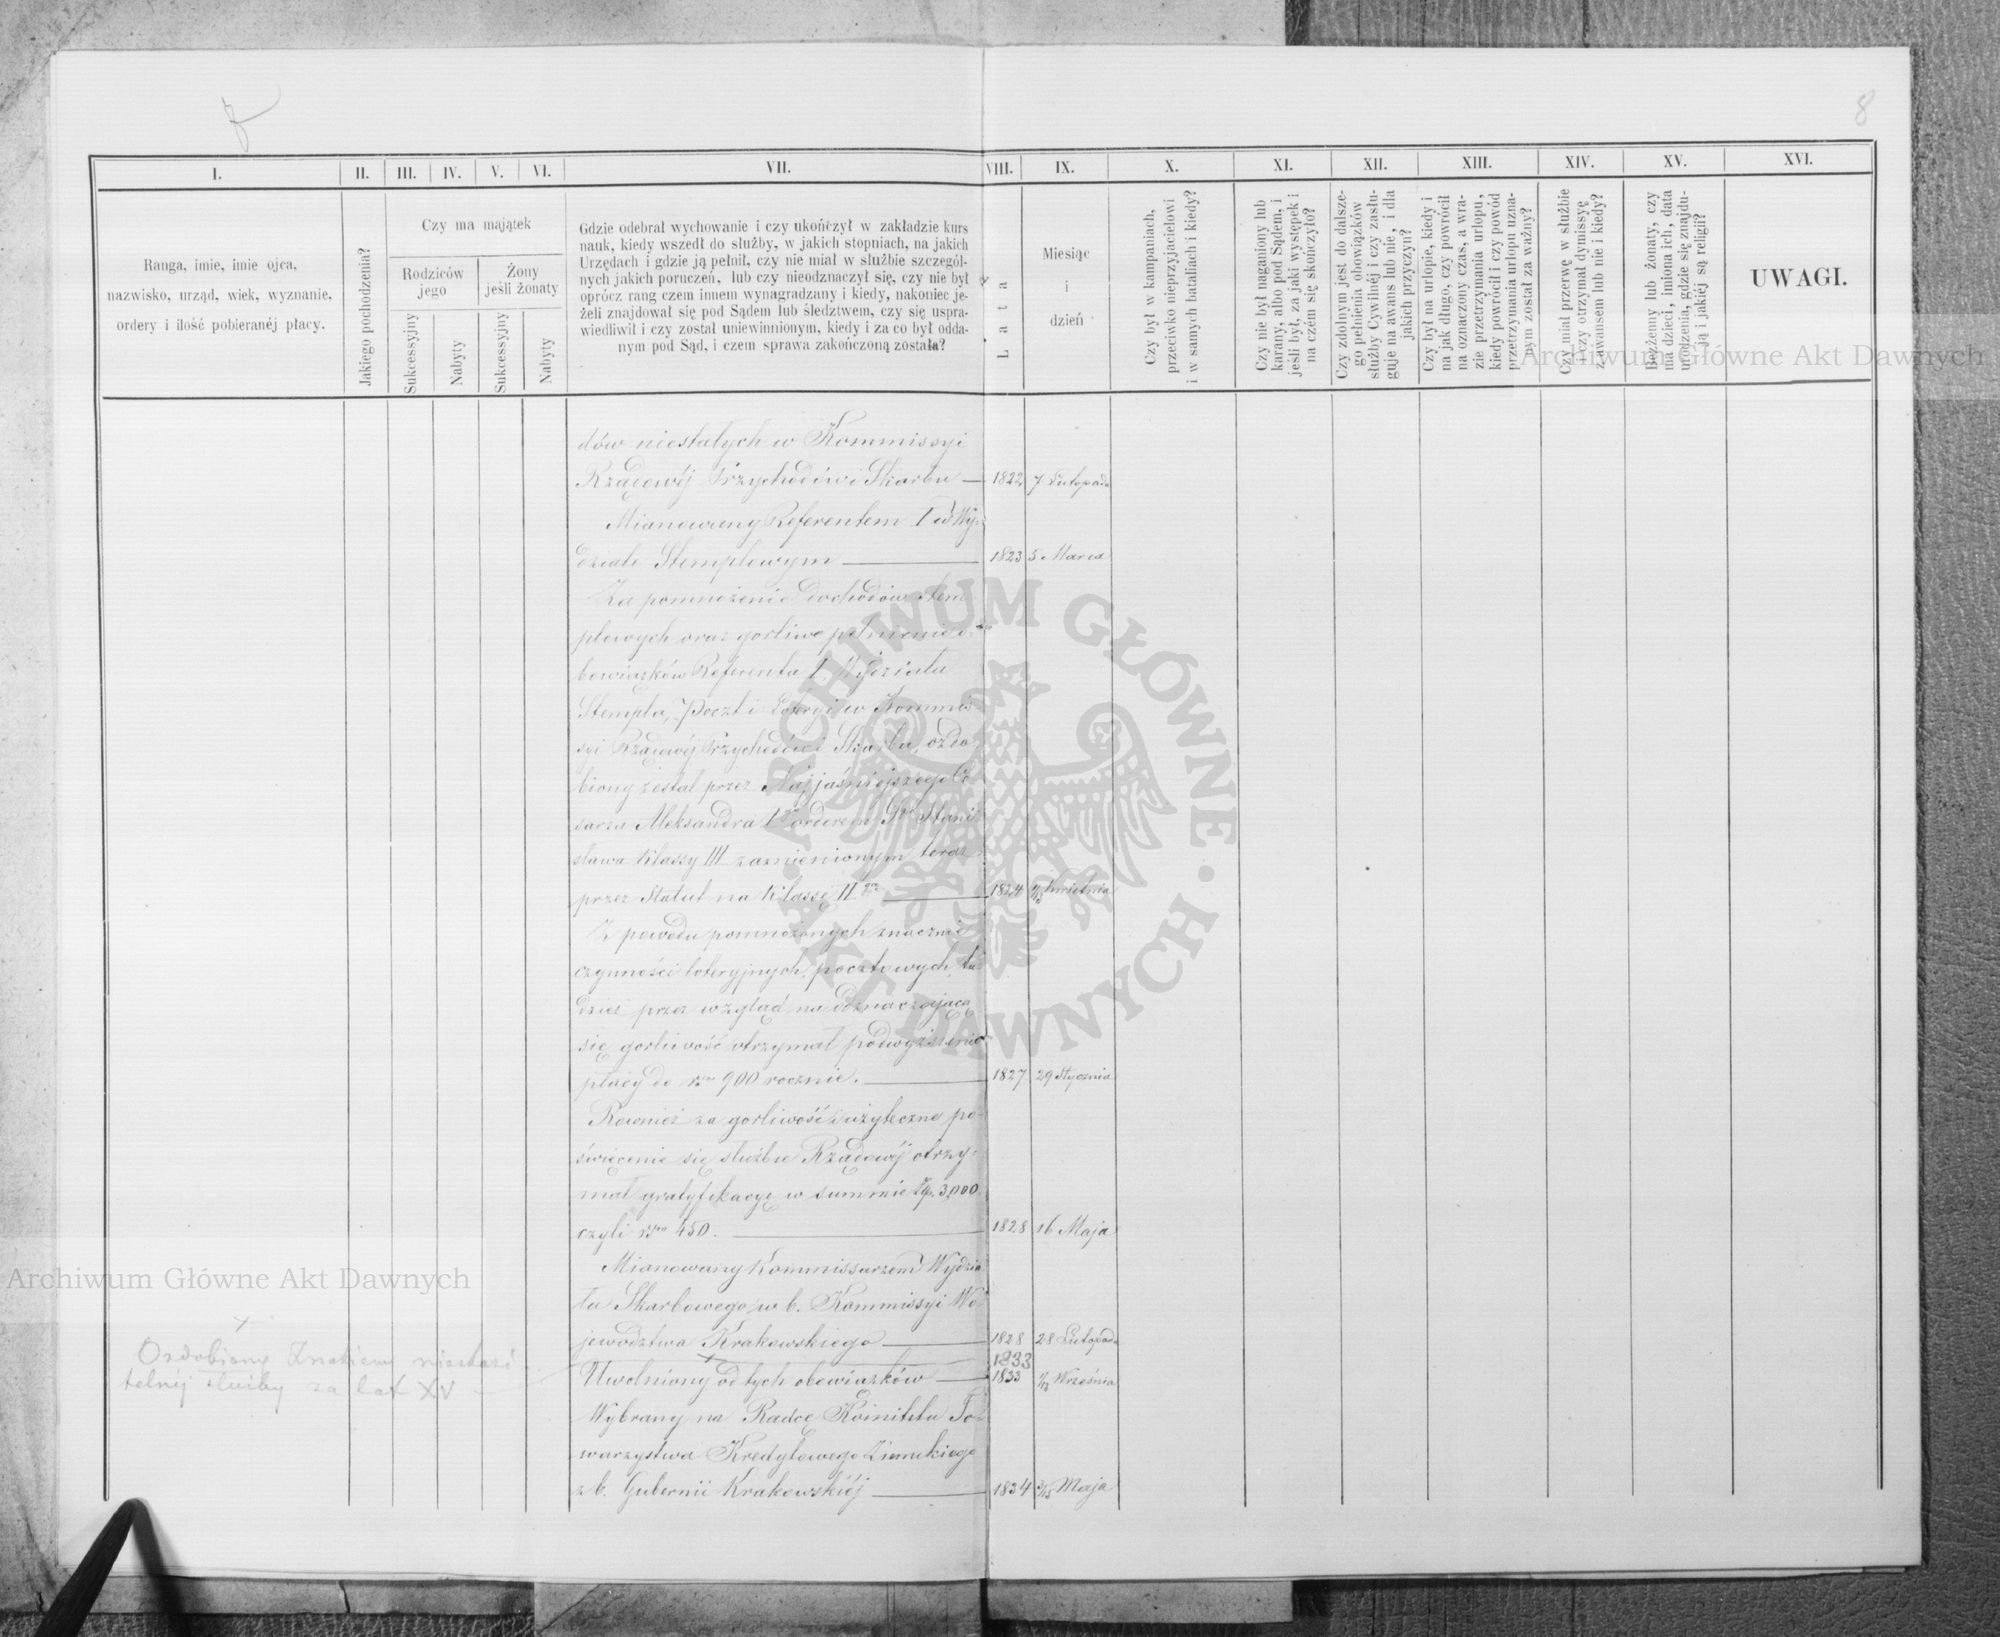 8
I. II. III. IV. V. VI. VII. VIII. IX. X. XI. XII. XIII. XIV. XV. XVI.
Ranga, imie, imie ojca,
nazwisko, urząd, wiek, wyznanie,
ordery i ilość pobieranéj płacy.
Jakiego pochodzenia?
Czy ma majątek
Rodziców
jego
Żony
jeśli żonaty
Sukcessyjny
Nabyty
Sukcessyjny
Nabyty
Gdzie odebrał wychowanie i czy ukończył w zakładzie kurs
nauk, kiedy wszedł do służby, w jakich stopniach, na jakich
Urzędach i gdzie ją pełnił, czy nie miał w służbie szczegól-
nych jakich poruczeń, lub czy nieodznaczył się, czy nie był
oprócz rang czem innem wynagradzany i kiedy, nakoniec je-
żeli znajdował się pod Sądem lub śledztwem, czy się uspra-
wiedliwił i czy został uniewinnionym, kiedy i za co był odda-
nym pod Sąd, i czem sprawa zakończoną została?
Lata
Miesiąc
i
dzień
Czy był w kampaniach,
przeciwko nieprzyjacielowi
i w samych bataliach i kiedy?
Czy nie był naganiony lub
karany, albo pod Sądem, i
jeśli był, za jaki występek i
na czém się skończyło?
Czy zdolnym jest do dalsze-
go pełnienia obowiązków
służby Cywilnéj i czy zasłu-
guje na awans lub nie, i dla
jakich przyczyn?
Czy był na urlopie, kiedy i
na jak długo, czy powrócił
na oznaczony czas, a w ra-
zie przetrzymania urlopu,
kiedy powrócił i czy powód
przetrzymania urlopu uzna-
nym został za ważny?
Czy miał przerwę w służbie
czy otrzymał dymissyę
z awansem lub nie i kiedy?
Bezżenny lub żonaty, czy
ma dzieci, imiona ich, data
urodzenia, gdzie się znajdu-
ją i jakiéj są religii?
UWAGI.
Archiwum Główne Akt Dawnych
dów niestałych w Kommissyi
Rządowéj Przychodów i Skarbu — 1822 7 Listopada
Mianowany Referentem I w Wy-
dziale Stemplowym — 1823 5 Marca
Za pomnożenie dochodów stem-
plowych oraz gorliwe pełnienie o-
bowiązków Referenta I Wydziału
Stempla, Poczt i Loteryi w Kommis-
syi Rządowéj Przychodów i Skarbu, ozdo-
biony został przez Najjaśniejszego Ce-
sarza Aleksandra Igo orderem Sgo Stani-
sława Klassy III zamienionym teraz
przez Statut na Klassę II — 1824 1/13 Kwietnia
Z powodu pomnożonych znacznie
czynności loteryjnych, pocztowych, tu-
dzież przez wzgląd na odznaczającą
się gorliwość otrzymał podwyższenie
płacy do rsr 900 rocznie. — 1827 29 Stycznia
Rownież za gorliwość i użyteczne po-
święcenie się służbie Rządowéj otrzy-
mał gratyfikacyę w summie złp. 3,000
czyli rsr 450. — 1828 16 Maja
Mianowany Kommissarzem Wydzia-
łu Skarbowego w b. Kommissyi Wo-
jewództwa Krakowskiego — 1828 28 Listopada
1833
Ozdobiony Znakiem nieskazi-
telnéj służby za lat XV —
Uwolniony od tych obowiązków — 1833 1/13 Września
Wybrany na Radcę Komitetu To-
warzystwa Kredytowego Ziemskiego
z b. Gubernii Krakowskiéj — 1834 3/15 Maja
Archiwum Główne Akt Dawnych
ARCHIWUM GŁÓWNE · AKT DAWNYCH ·